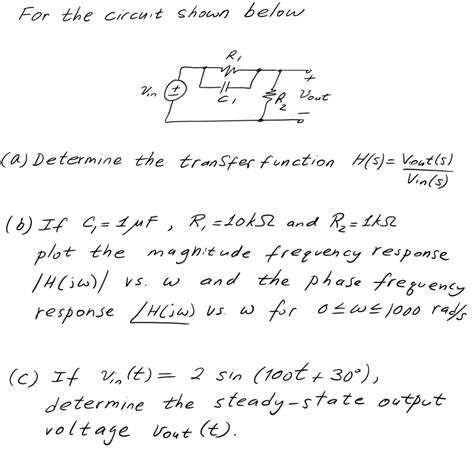 For the circuit shown below
R₁
Vin
+
C₁
R₂
+
Vout
−
(a) Determine the transfer function H(s) = Vout(s)/Vin(s)
(b) If C₁ = 1μF, R₁ = 10kΩ and R₂ = 1kΩ
plot the magnitude frequency response
|H(jω)| vs. ω and the phase frequency
response ∠H(jω) vs. ω for 0 ≤ ω ≤ 1000 rad/s
(c) If vin(t) = 2 sin (100t + 30°),
determine the steady-state output
voltage vout(t).